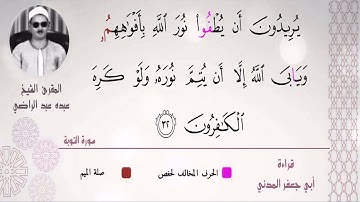 يُرِيدُونَ أَن يُطْفُوا نُورَ اللَّهِ بِأَفْوَٰهِهِمُۥ
وَيَابَى اللَّهُ إِلَّا أَن يُتِمَّ نُورَهُۥ وَلَوْ كَرِهَ
الْكَٰفِرُونَ ٣٢
القارئ الشيخ
عبده عبد الراضي
سورة التوبة
قراءة
أبي جعفر المدني
الحرف المخالف لحفص
صلة الميم